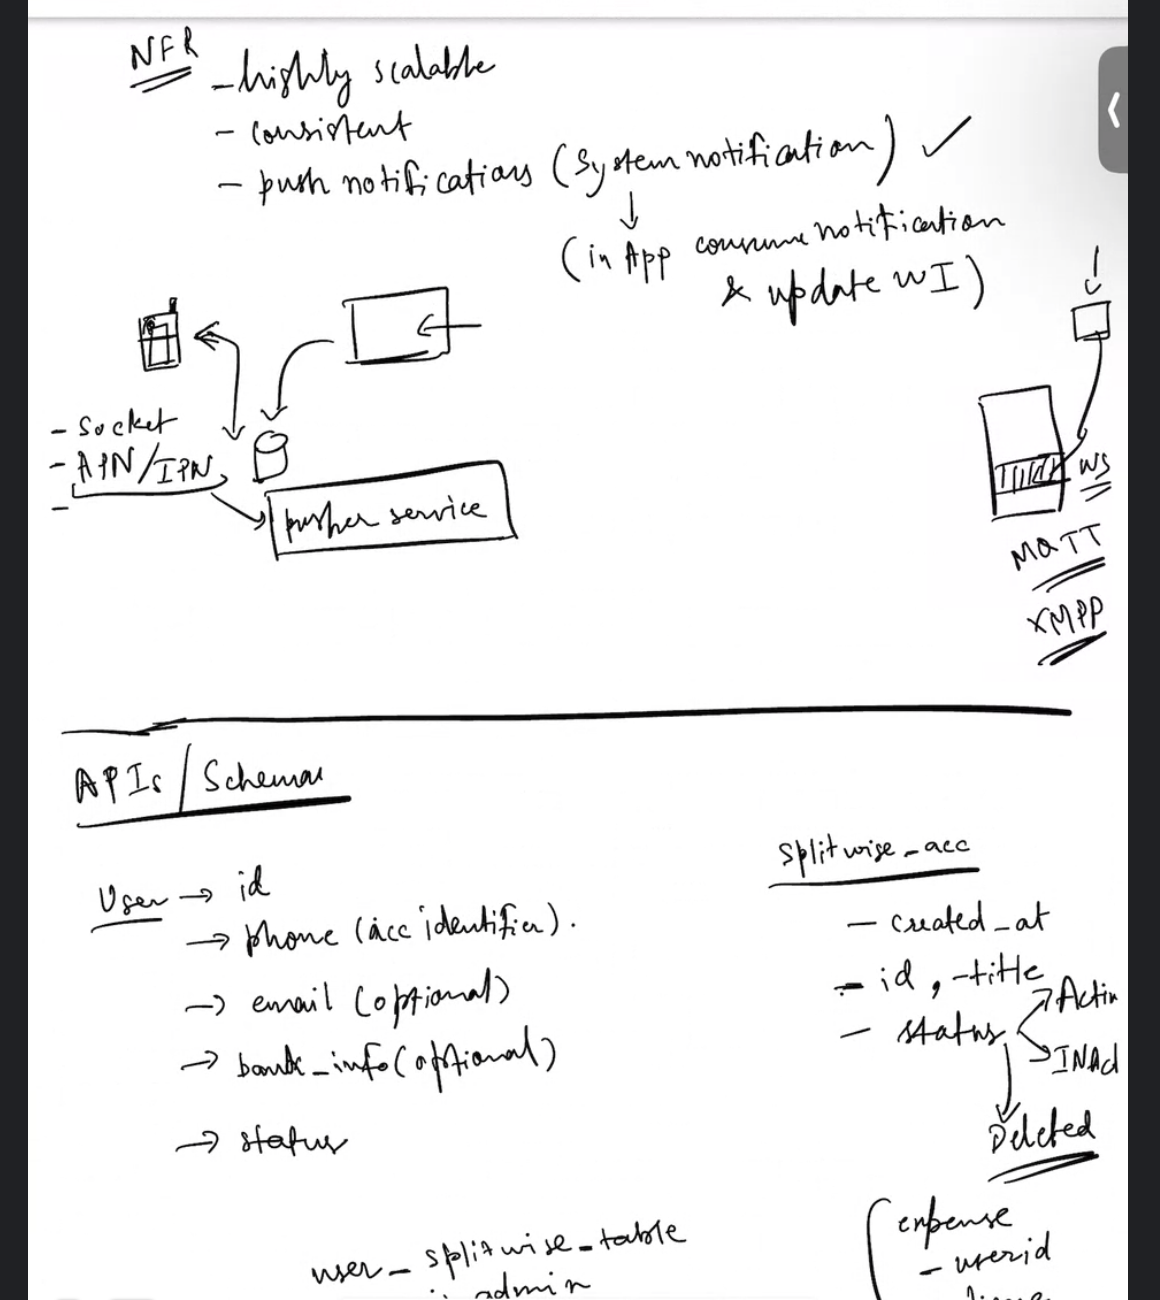 NFR
- highly scalable
- consistent
- push notifications (System notification) ✓
(in App consume notification
& update WI)
- Socket
- APN/IPN
-
pusher service
WS
MQTT
XMPP
APIs / Schema
User → id
→ phone (acc identifier).
→ email (optional)
→ bank_info (optional)
→ status
splitwise_acc
- created_at
- id, -title
- status
Activ
INAct
Deleted
user_splitwise_table
admin
expense
- userid